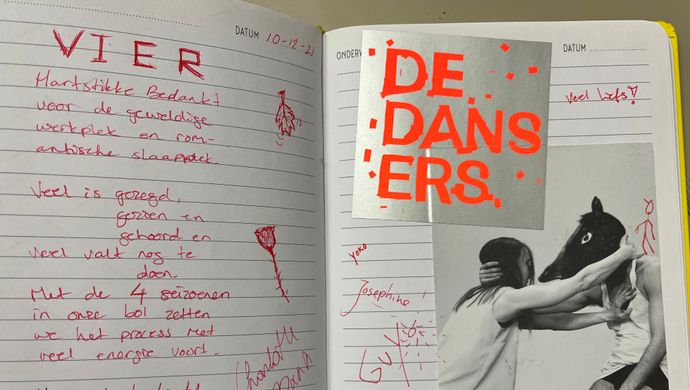 DATUM 10-12-21
VIER
Hartstikke Bedankt
voor de geweldige
werkplek en rom-
antische slaapplek.
Veel is gezegd,
gezien en
gehoord en
veel valt nog te
doen.
Met de 4 seizoenen
in onze bol zetten
we het process met
veel energie voort.
Charlotte
ONDERW
DATUM
Veel liefs!
DE
DANS
ERS
YOKO
Josephine
Guy